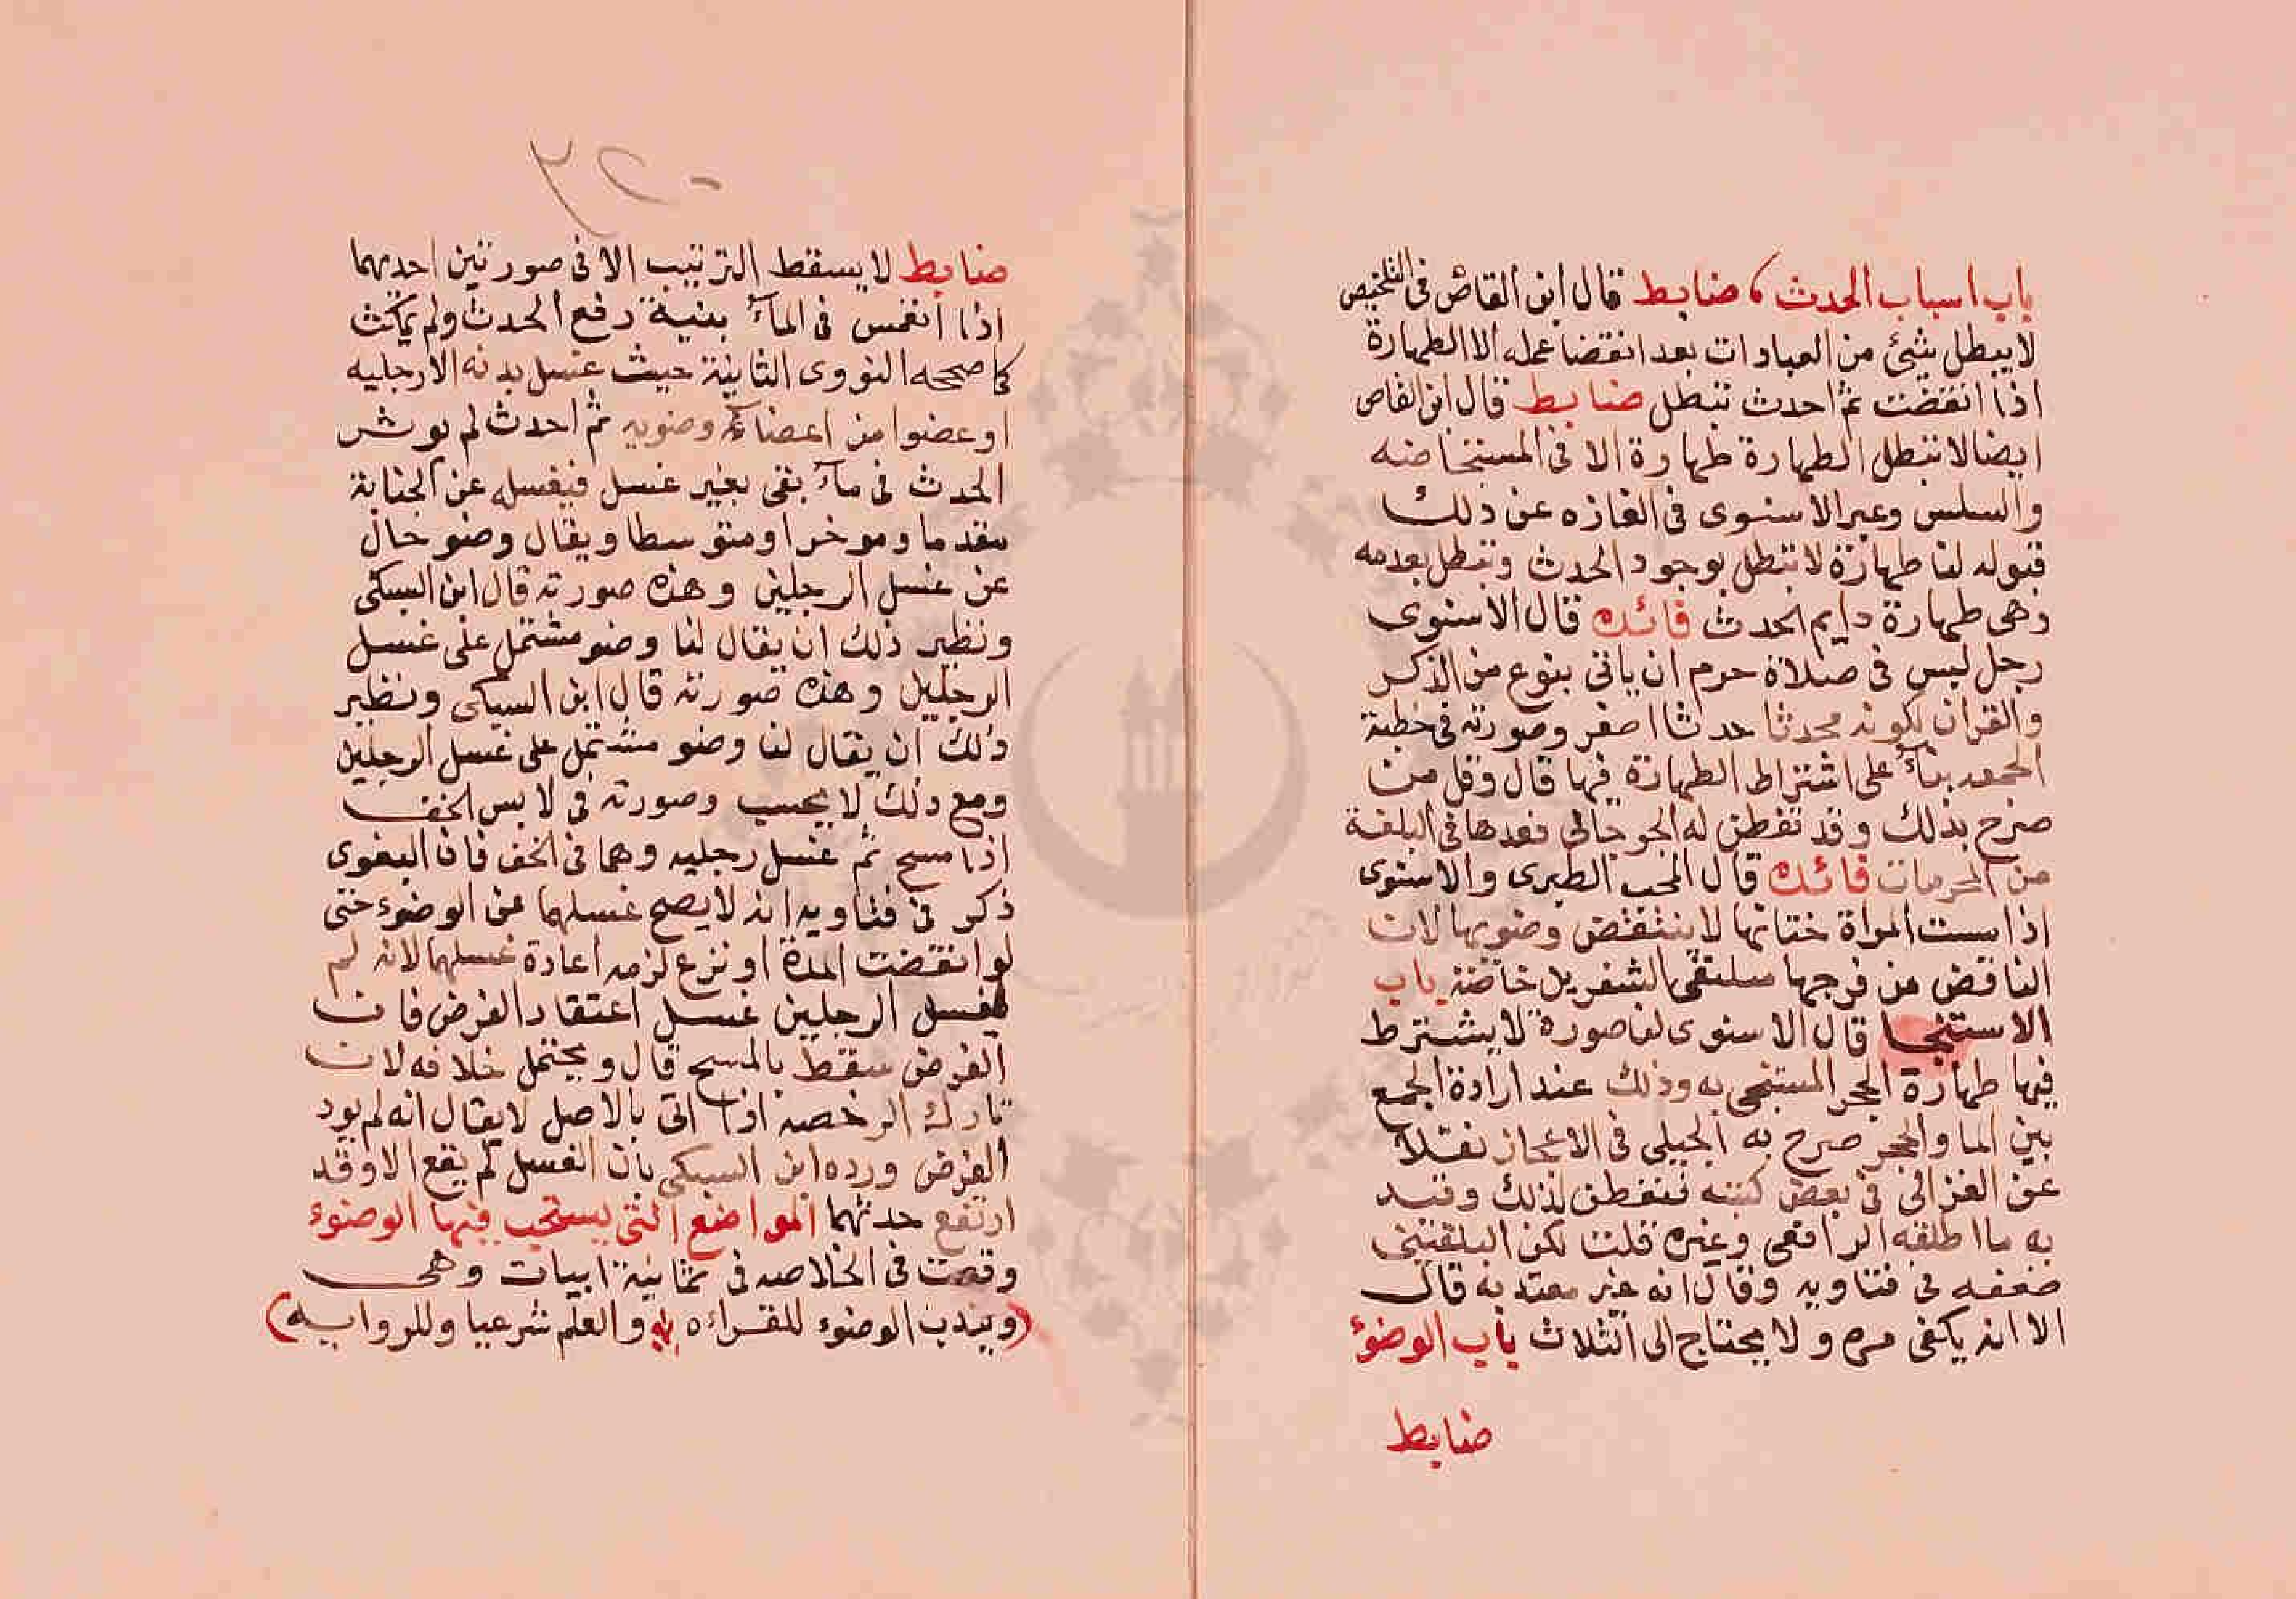 باب اسباب الحدث ضابط قال ابن القاص فى التلخيص
لا يبطل شئ من العبادات بعد انقضا عمله الا الطهارة
اذا انقضت ثم احدث تبطل ضابط قال ابن القاص
ايضا لا تبطل الطهارة طهارة الا فى المستحاضه
والسلس وعبر الاسنوى فى الغازه عن ذلك
بقوله لنا طهارة لا تبطل بوجود الحدث وتبطل بعدمه
وهى طهارة دايم الحدث فائده قال الاسنوى
رجل ليس فى صلاة حرم ان ياتى بنوع من الذكر
والقران لكونه محدثا حدثا اصغر وصورته فى خطبة
الجمعه بناء على اشتراط الطهارة فيها قال وقل من
صرح بذلك وقد تفطن له الجرجانى فعدها فى البلغة
من المحرمات فائده قال المحب الطبرى والاسنوى
اذا مست المراة ختانها لا ينتقض وضويها لان
الناقض من فرجها ملتقى الشفرين خاصة باب
الاستنجا قال الاسنوى لنا صورة لا يشترط
فيها طهارة الحجر المستنجى به وذلك عند ارادة الجمع
بين الما والحجر صرح به الجيلى فى الاعجاز نقلا
عن الغزالى فى بعض كتبه فتفطن لذلك وقيد
به ما اطلقه الرافعى وغيره قلت لكن البلقينى
ضعفه فى فتاويه وقال انه غير معتد به قال
الا انه يكفى مره ولا يحتاج الى الثلاث باب الوضوء
ضابط
ضابط لا يسقط الترتيب الا فى صورتين احديهما
اذا انغمس فى الماء بنية رفع الحدث ولم يمكث
كما صححه النووى الثانية حيث غسل بدنه الا رجليه
او عضوا من اعضاء وضويه ثم احدث لم يوثر
الحدث فى ماء بقى بغير غسل فيغسله عن الجنابة
مقدما وموخرا ومتوسطا ويقال وضو خال
عن غسل الرجلين وهذه صورته قال ابن السبكى
ونظير ذلك ان يقال لنا وضو مشتمل على غسل
الرجلين وهذه صورته قال ابن السبكى ونظير
ذلك ان يقال لنا وضو مشتمل على غسل الرجلين
ومع ذلك لا يحسب وصورته فى لابس الخف
اذا مسح ثم غسل رجليه وهما فى الخف فان البغوى
ذكر فى فتاويه انه لا يصح غسلهما عن الوضوء حتى
لو انقضت المدة او نزع لزمه اعادة غسلهما لانه لم
يغسل الرجلين غسل اعتقاد الفرض فان
الفرض سقط بالمسح قال ويحتمل خلافه لان
تارك الرخصة اذا اتى بالاصل لا يقال انه لم يود
الفرض ورده ابن السبكى بان الغسل لم يقع الا وقد
ارتفع حدثهما المواضع التى يستحب فيها الوضوء
وقعت فى الخلاصه فى ثمانية ابيات وهى
(ويندب الوضوء للقراءه والعلم شرعيا وللروايه)